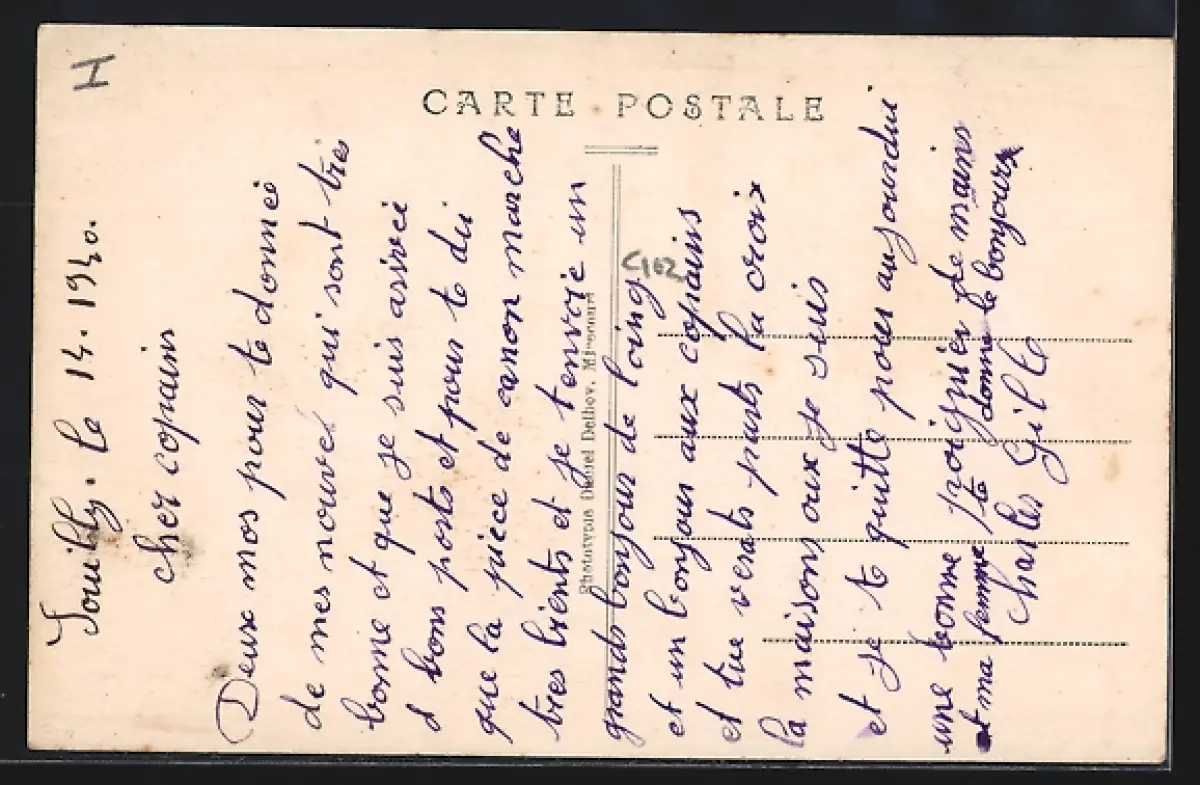 CARTE POSTALE
H
le 14. 1940.
cher copains
Deux mos pour te donneé
de mes nouveé qui sont très
bonne et que je suis ariveé
a bons ports et pour te dii
que la pièce de canon marche
très bients et je t'envoie un
grands bonjour de loing
et un bonjour aux copains
et tue verats parts la croix
la maisons oux je suis
et je te quitte pour aujourdui
une bonne poignier de mains
et ma femme te donne le bonjours
Charles Gille
Phototypie Daniel Delboy, Mirecourt